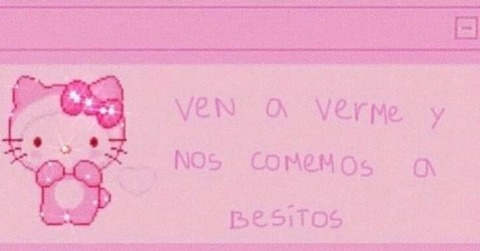 ven a verme y
nos comemos a
besitos